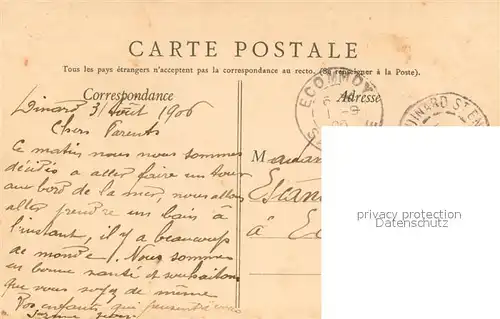 CARTE POSTALE
Tous les pays étrangers n'acceptent pas la correspondance au recto. (Se renseigner à la Poste).
Correspondance
Adresse
ECOMMOY
DINARD ST EN
Dinard 31 Août 1906
Chers Parents
Ce matin nous nous sommes
décidés a aller faire un tour
au bord de la mer, nous allons
aller prendre un bain à
l'instant, il y a beaucoup
de monde. Nous sommes
en bonne santé et souhaitons
que vous soyez de même
Vos enfants qui
M
à
privacy protection
Datenschutz